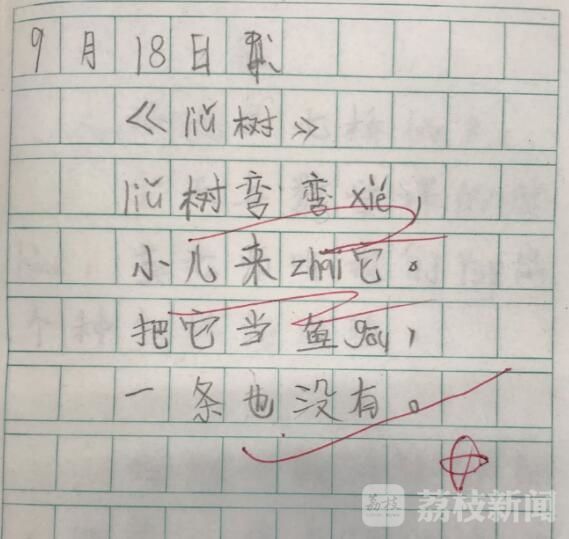 9月18日
《liǔ树》
liǔ树弯弯xié,
小儿来zhāi它。
把它当鱼gōu,
一条也没有。
荔枝 荔枝新闻